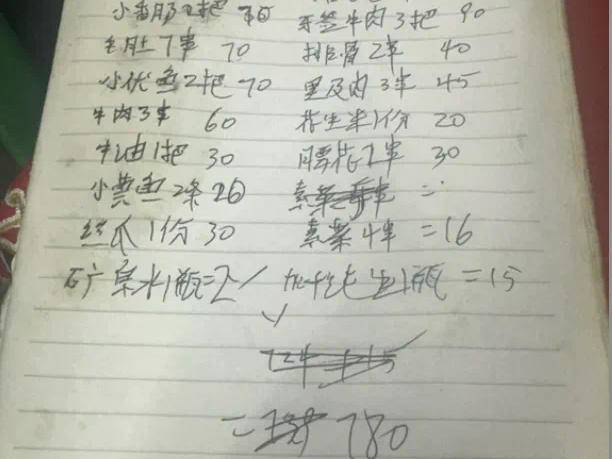 小香肠2把 牙签牛肉3把 90
毛肚7串 70 排骨2串 40
小优鱼2把 70 里及肉3串 45
牛肉3串 60 花生米1份 20
牛油1把 30 腰花2串 30
小黄鱼2条 20 素菜 =
丝瓜1份 30 素菜4串 =16
矿泉水1瓶=2 1瓶 =15
= 780